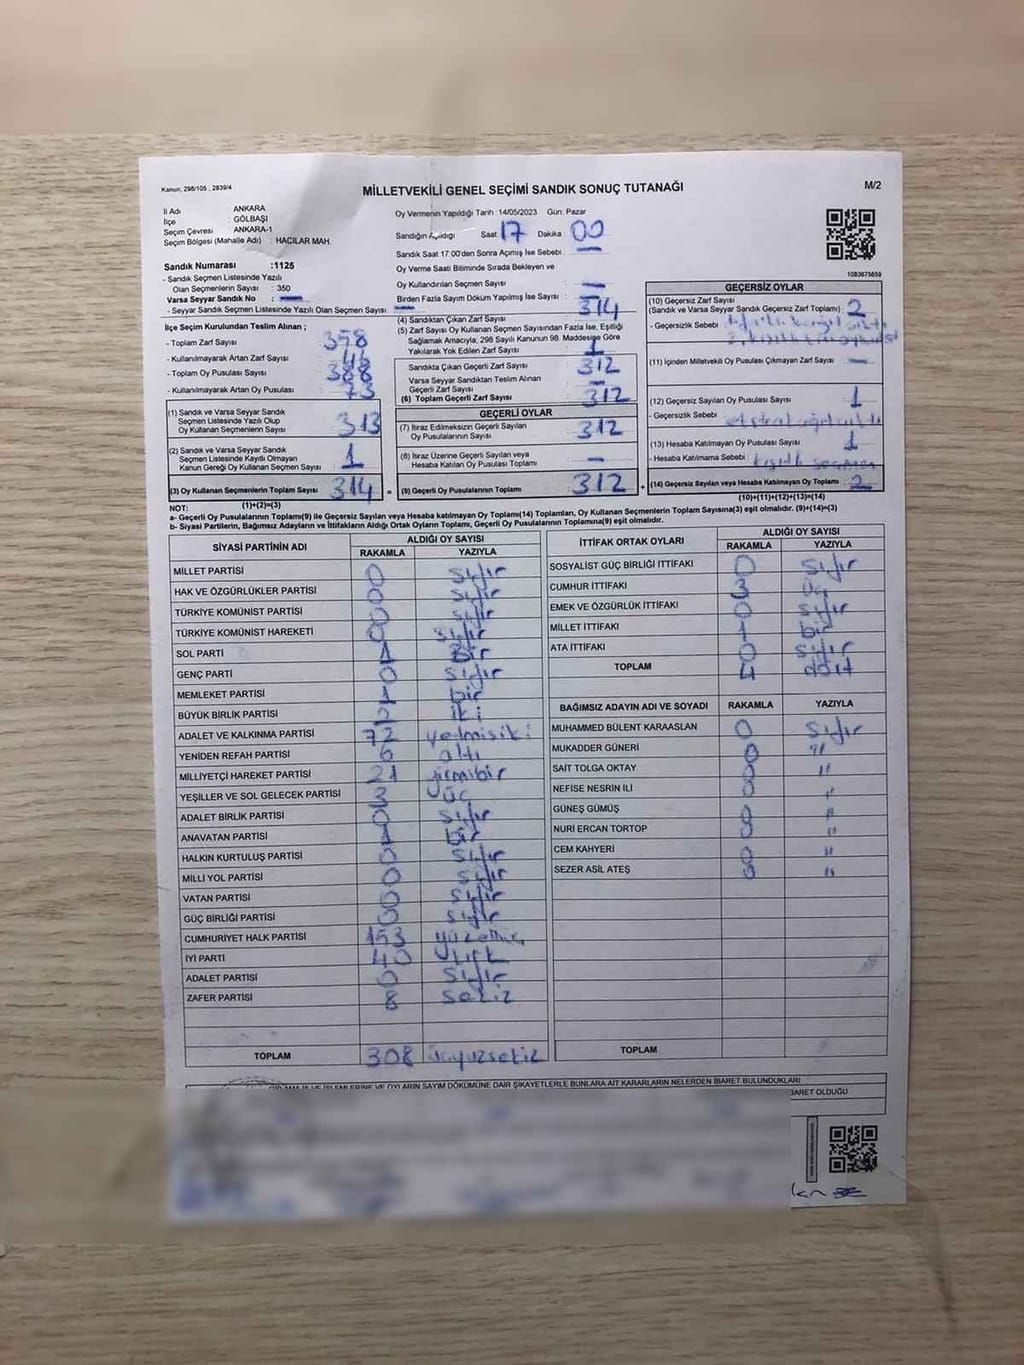 Kanun; 298/105 , 2839/4
MİLLETVEKİLİ GENEL SEÇİMİ SANDIK SONUÇ TUTANAĞI
M/2
İli Adı ANKARA
İlçe : GÖLBAŞI
Seçim Çevresi : ANKARA-1
Seçim Bölgesi (Mahalle Adı) : HACILAR MAH.
Oy Vermenin Yapıldığı Tarih :14/05/2023 Gün: Pazar
Sandığın Açıldığı Saat: 17 Dakika: 00
Sandık Saat 17:00'den Sonra Açımış İse Sebebi : —
Oy Verme Saati Bitiminde Sırada Bekleyen ve
Oy Kullandırılan Seçmen Sayısı : —
Birden Fazla Sayım Döküm Yapılmış İse Sayısı : —
Sandık Numarası :1125
- Sandık Seçmen Listesinde Yazılı
Olan Seçmenlerin Sayısı : 350
Varsa Seyyar Sandık No : —
- Seyyar Sandık Seçmen Listesinde Yazılı Olan Seçmen Sayısı: —
İlçe Seçim Kurulundan Teslim Alınan ;
- Toplam Zarf Sayısı : 358
- Kullanılmayarak Artan Zarf Sayısı :
- Toplam Oy Pusulası Sayısı : 388
- Kullanılmayarak Artan Oy Pusulası : 73
(1) Sandık ve Varsa Seyyar Sandık
Seçmen Listesinde Yazılı Olup
Oy Kullanan Seçmenlerin Sayısı : 313
(2) Sandık ve Varsa Seyyar Sandık
Seçmen Listesinde Kayıtlı Olmayan
Kanun Gereği Oy Kullanan Seçmen Sayısı : 1
(3) Oy Kullanan Seçmenlerin Toplam Sayısı : 314
(1)+(2)=(3)
(4) Sandıktan Çıkan Zarf Sayısı : 314
(5) Zarf Sayısı Oy Kullanan Seçmen Sayısından Fazla İse, Eşitliği
Sağlamak Amacıyla, 298 Sayılı Kanunun 98. Maddesine Göre
Yakılarak Yok Edilen Zarf Sayısı : 1
Sandıkta Çıkan Geçerli Zarf Sayısı : 312
Varsa Seyyar Sandıktan Teslim Alınan
Geçerli Zarf Sayısı : —
(6) Toplam Geçerli Zarf Sayısı : 312
GEÇERLİ OYLAR
(7) İtiraz Edilmeksizin Geçerli Sayılan
Oy Pusulalarının Sayısı : 312
(8) İtiraz Üzerine Geçerli Sayılan veya
Hesaba Katılan Oy Pusulası Toplamı : —
= (9) Geçerli Oy Pusulalarının Toplamı : 312 +
1083675659
GEÇERSİZ OYLAR
(10) Geçersiz Zarf Sayısı
(Sandık ve Varsa Seyyar Sandık Geçersiz Zarf Toplamı) : 2
- Geçersizlik Sebebi :
(11) İçinden Milletvekili Oy Pusulası Çıkmayan Zarf Sayısı : —
(12) Geçersiz Sayılan Oy Pusulası Sayısı : 1
- Geçersizlik Sebebi :
(13) Hesaba Katılmayan Oy Pusulası Sayısı : 1
- Hesaba Katılmama Sebebi : kısıtlı seçmen
(14) Geçersiz Sayılan veya Hesaba Katılmayan Oy Toplamı : 2
(10)+(11)+(12)+(13)=(14)
NOT:
a- Geçerli Oy Pusulalarının Toplamı(9) ile Geçersiz Sayılan veya Hesaba Katılmayan Oy Toplamı(14) Toplamları, Oy Kullanan Seçmenlerin Toplam Sayısına(3) eşit olmalıdır. (9)+(14)=(3)
b- Siyasi Partilerin, Bağımsız Adayların ve İttifakların Aldığı Ortak Oyların Toplamı, Geçerli Oy Pusulalarının Toplamına(9) eşit olmalıdır.
SİYASİ PARTİNİN ADI ALDIĞI OY SAYISI
RAKAMLA YAZIYLA
MİLLET PARTİSİ 0 sıfır
HAK VE ÖZGÜRLÜKLER PARTİSİ 0 sıfır
TÜRKİYE KOMÜNİST PARTİSİ 0 sıfır
TÜRKİYE KOMÜNİST HAREKETİ 0 sıfır
SOL PARTİ 1 Bir
GENÇ PARTİ 0 sıfır
MEMLEKET PARTİSİ 1 bir
BÜYÜK BİRLİK PARTİSİ 2 iki
ADALET VE KALKINMA PARTİSİ 72 yetmişiki
YENİDEN REFAH PARTİSİ 6 altı
MİLLİYETÇİ HAREKET PARTİSİ 21 yirmibir
YEŞİLLER VE SOL GELECEK PARTİSİ 3 üç
ADALET BİRLİK PARTİSİ 0 sıfır
ANAVATAN PARTİSİ 1 bir
HALKIN KURTULUŞ PARTİSİ 0 sıfır
MİLLİ YOL PARTİSİ 0 sıfır
VATAN PARTİSİ 0 sıfır
GÜÇ BİRLİĞİ PARTİSİ 0 sıfır
CUMHURİYET HALK PARTİSİ 153
İYİ PARTİ 40 kırk
ADALET PARTİSİ 0 sıfır
ZAFER PARTİSİ 8 sekiz
TOPLAM 308 üçyüzsekiz
İTTİFAK ORTAK OYLARI ALDIĞI OY SAYISI
RAKAMLA YAZIYLA
SOSYALİST GÜÇ BİRLİĞİ İTTİFAKI 0 sıfır
CUMHUR İTTİFAKI 3 üç
EMEK VE ÖZGÜRLÜK İTTİFAKI 0 sıfır
MİLLET İTTİFAKI 1 bir
ATA İTTİFAKI 0 sıfır
TOPLAM 4 dört
BAĞIMSIZ ADAYIN ADI VE SOYADI RAKAMLA YAZIYLA
MUHAMMED BÜLENT KARAASLAN 0 sıfır
MUKADDER GÜNERİ 0 "
SAİT TOLGA OKTAY 0 "
NEFİSE NESRİN İLİ 0 "
GÜNEŞ GÜMÜŞ 0 "
NURİ ERCAN TORTOP 0 "
CEM KAHYERİ 0 "
SEZER ASİL ATEŞ 0 "
TOPLAM
OYLARIN SAYIM DÖKÜMÜNE DAİR ŞİKAYETLERLE BUNLARA AİT KARARLARIN NELERDEN İBARET BULUNDUKLARI
İBARET OLDUĞU